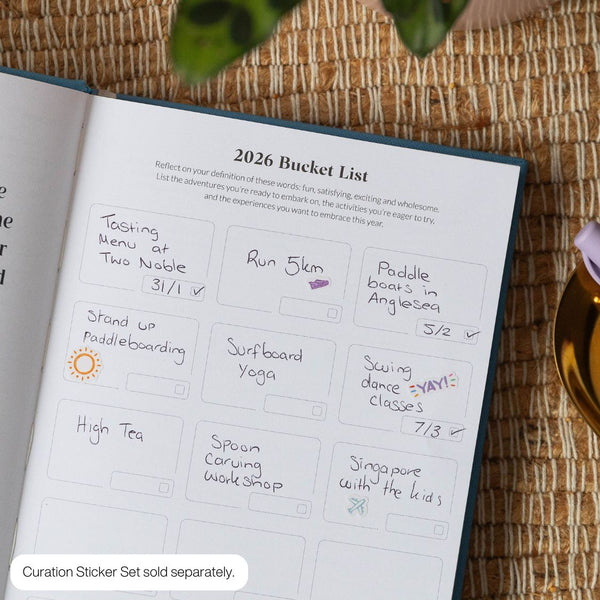 2026 Bucket List
Reflect on your definition of these words: fun, satisfying, exciting and wholesome.
List the adventures you're ready to embark on, the activities you're eager to try,
and the experiences you want to embrace this year.
Tasting
Menu at
Two Noble
31/1
Run 5km
Paddle
boats in
Anglesea
5/2
Stand up
Paddleboarding
Surfboard
Yoga
Swing
dance
classes
YAY!
7/3
High Tea
Spoon
Carving
Workshop
Singapore
with the kids
Curation Sticker Set sold separately.